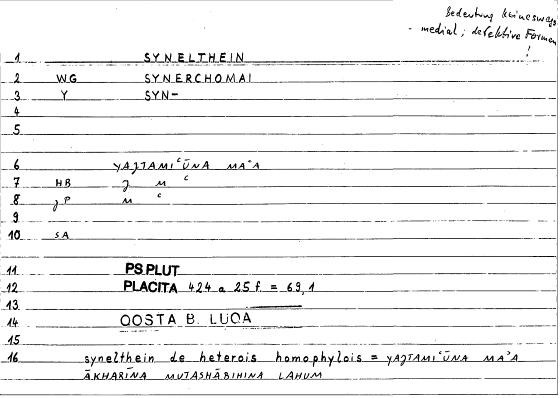 Bedeutung keineswegs
- medial; defektive Formen
!
1 SYNELTHEIN
2 WG SYNERCHOMAI
3 Y SYN-
4
5
6 YAJTAMIʿŪNA MAʿA
7 HB J M ʿ
8 JP M ʿ
9
10 SA
11 PS PLUT
12 PLACITA 424 a 25 f. = 69,1
13
14 QOSTA B. LUQA
15
16 synelthein de heterois homophylois = YAJTAMIʿŪNA MAʿA
ĀKHARĪNA MUTASHĀBIHINA LAHUM